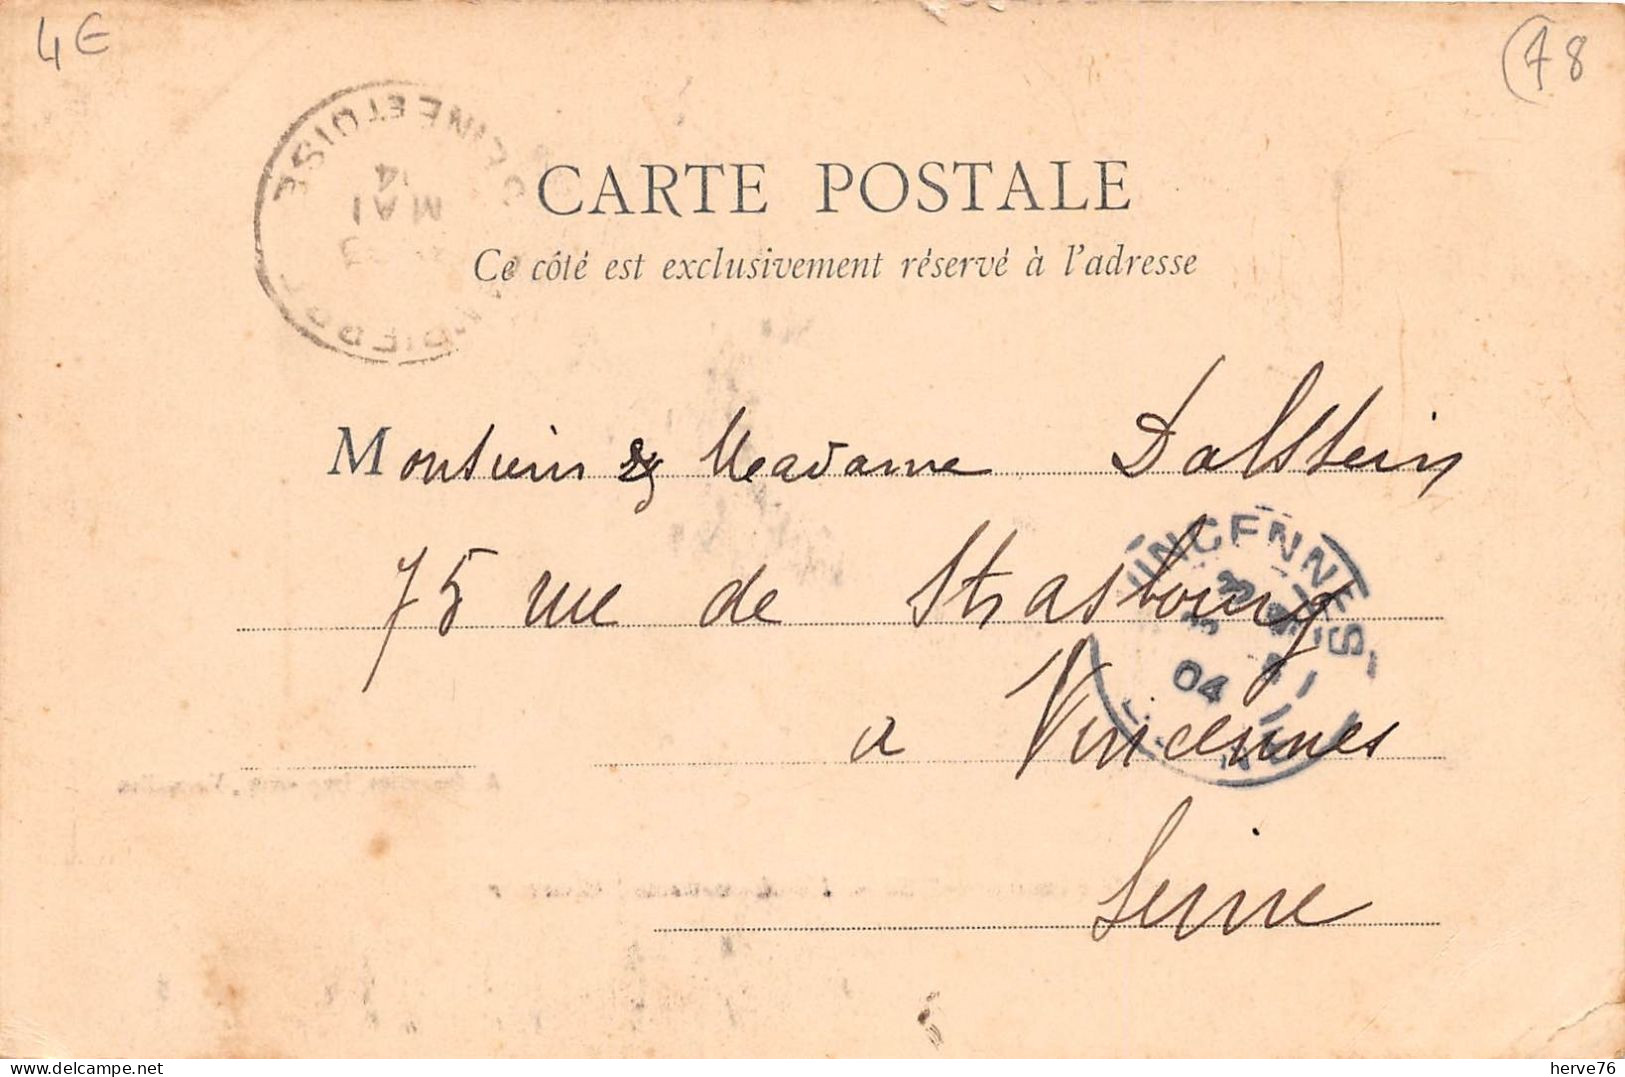 4€
78
SEINE ET OISE
14
MAI
CARTE POSTALE
Ce côté est exclusivement réservé à l'adresse
Monsieur & Madame Dalstein
75 rue de Strasbourg
VINCENNES
04
a Vincennes
Seine
herve76